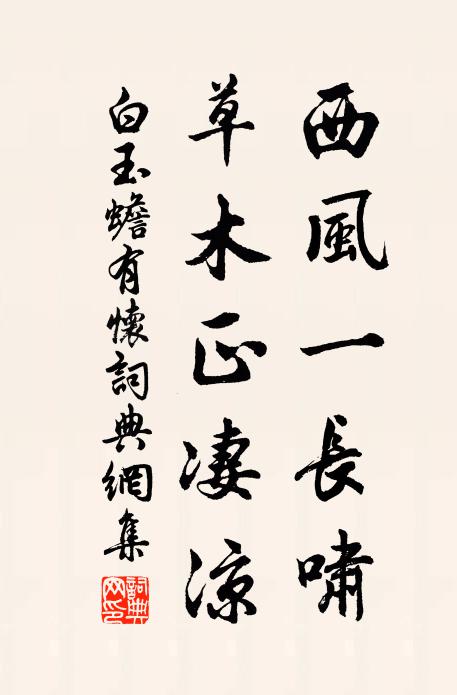 西風一長嘯
草木正凄涼
白玉蟾有懷詞典網集
詞典網印